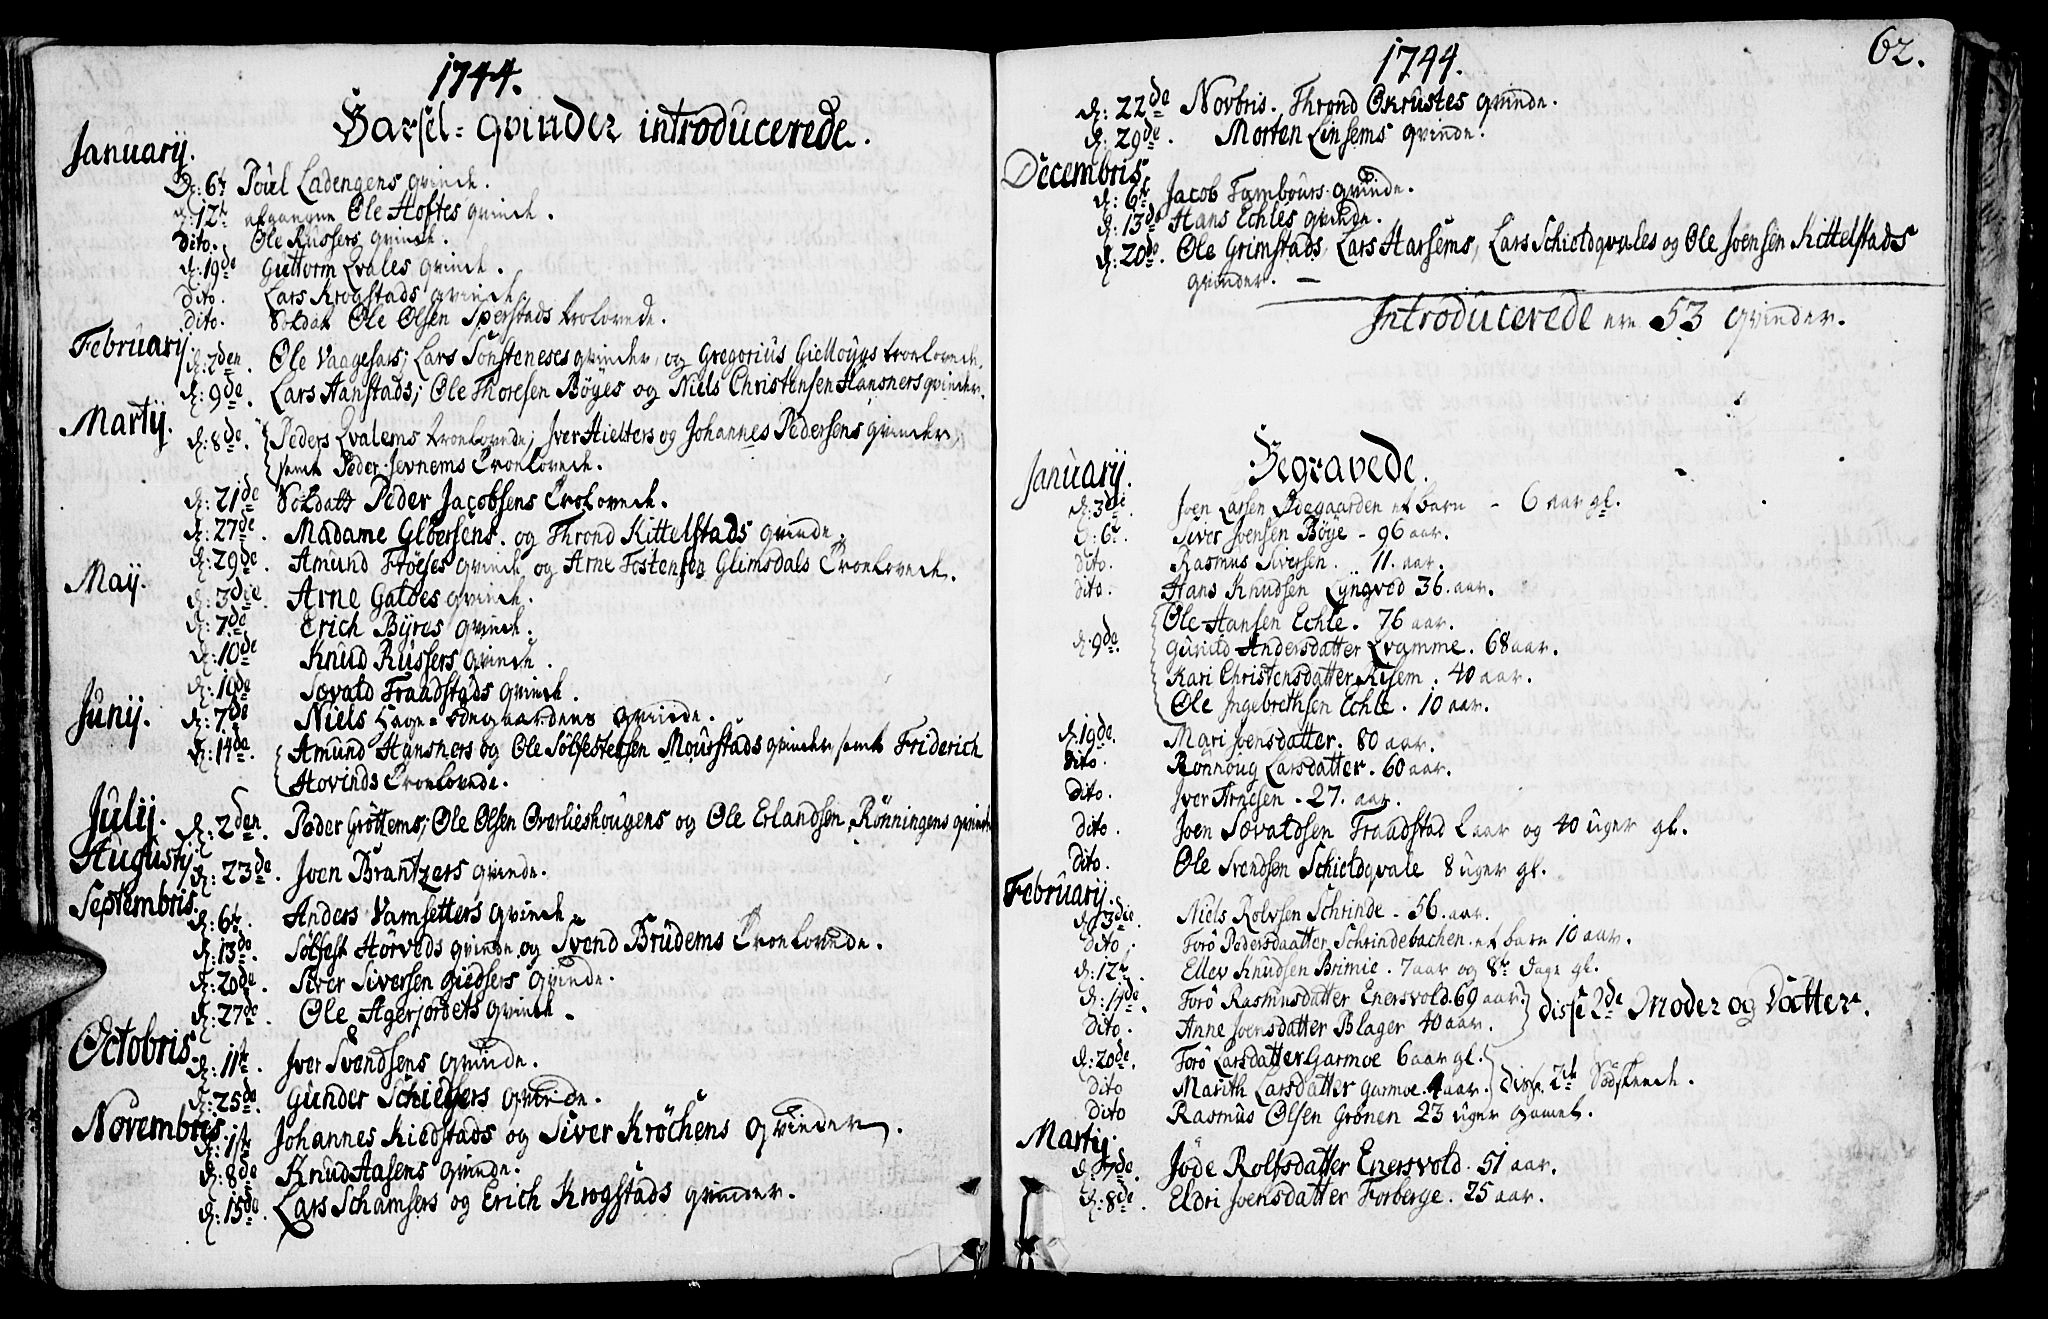 1744.
Barsel-qvinder introducerede.
Januarij.
d: 6te Poul Ladengens qvinde.
d: 12te afgangne Ole Hoftes qvinde.
dito. Ole Russers qvinde.
d: 19de Guttorm Qvales qvinde.
dito. Lars Krogstads qvinde.
dito. Soldat Ole Olsen Sperstads trolovede.
Februarij
d: 2den. Ole Vaagesars; Lars Sonsteneses qvinder, og Gregorius Gielloÿgs troelovede.
d: 9de. Lars Hanstads; Ole Thoresen Bøÿes og Niels Christensen Hansners qvinder.
Martij.
d: 8de. Peders Qvalems troelovede; Iver Hielters og Johannes Pedersens qvinder,
samt Peder Jevnems Troelovede.
d: 21de Soldatt Peder Jacobsens Trolovede.
d: 27de. Madame Glbersens. og Thrond Kittelstads qvinde.
d: 29de. Amund Frøeses qvinde og Arne Tostensen Glimsdals Troelovede.
Maij.
d: 3die. Arne Galdes qvinde.
d: 7de Erich Bÿres qvinde.
d: 10de Knud Russers qvinde.
d: 19de Sævald Fraadstads qvinde.
Junij.
d: 7de Niels Hage-ødegaardens qvinde.
d: 14de. Amund Hansners og Ole Sølfestersen Mourstads qvinder samt Friderich
Hovinds Troelovede.
Julij.
d: 2den. Peder Grøttems; Ole Olsen Overlieshougens og Ole Erlandsen Rønningens qvinder
Augustij
d: 23de. Joen Brantzers qvinde.
Septembris.
d: 6te. Anders Vamsetters qvinde.
d: 13de. Sølfest Hørveds qvinde og Svend Brudems Troelovede.
d: 20de. Siver Siversen Giedsers qvinde.
d: 27de. Ole Agerjordets qvinde.
Octobris.
d: 11te. Iver Svendsens qvinde.
d: 25de. Gunder Schiebers qvinde.
Novembris.
d: 1te Johannes Kiedstads og Siver Krøchens qvinder.
d: 8de Knud Hasens qvinde.
d: 15de. Lars Schamsers og Erich Krogstads qvinder.
62.
1744.
d: 22de Novbris. Thrond Okrustes qvinde.
d: 29de. Morten Linsems qvinde.
Decembris.
d: 6te. Jacob Tambours qvinde.
d: 13de Hans Echles qvinde.
d: 20de. Ole Grimstads, Lars Harsems, Lars Schioldqvales og Ole Joensen Kittelstads
qvinder. —
Introducerede ere 53 qvinder.
Begravede.
Januarij.
d: 3die. Joen Larsen Ødegaarden et barn - 6 aar gl.
d: 6te. Siver Joensen Bøÿe - 96 aar.
dito. Rasmus Siversen. 11. aar.
dito. Hans Knudsen Lÿngved 36. aar.
Ole Hansen Echle. 76 aar.
d: 9de. Gunild Andersdatter Qvamme. 68 aar.
Kari Christensdatter Risem. 40 aar.
Ole Ingebrethsen Echle. 10 aar.
d: 19de. Mari Joensdatter. 80 aar.
dito. Rønnoug Larsdatter. 60 aar.
dito. Iver Arnesen - 27. aar.
dito. Joen Sævaldsen Fraadstad 2 aar og 40 uger gl.
dito. Ole Svendsen Schieldqvale 8 uger gl.
Februarij.
d: 3die. Niels Rolvsen Schrinde - 56. aar.
dito. Torø Pedersdaatter Schrindebachen. et barn 10 aar.
d: 12te. Ellev Knudsen Brimie. 7 aar og 8te dage gl.
d: 17de. Torø Rasmusdatter Enersvold. 69 aar.
dito. Anne Joensdatter Blager 40 aar. } disse 2de Moder og Datter.
d: 20de. Torø Larsdatter Garmoe 6 aar gl.
dito Marith Larsdatter Garmoe. 4 aar. } disse 2de Sødskende.
dito Rasmus Olsen Grønen 23 uger gamel.
Martij.
d: 7de. Jøde Rolfsdatter Enersvold. 51 aar.
d: 8de. Eldri Joensdatter Forberge. 25 aar.